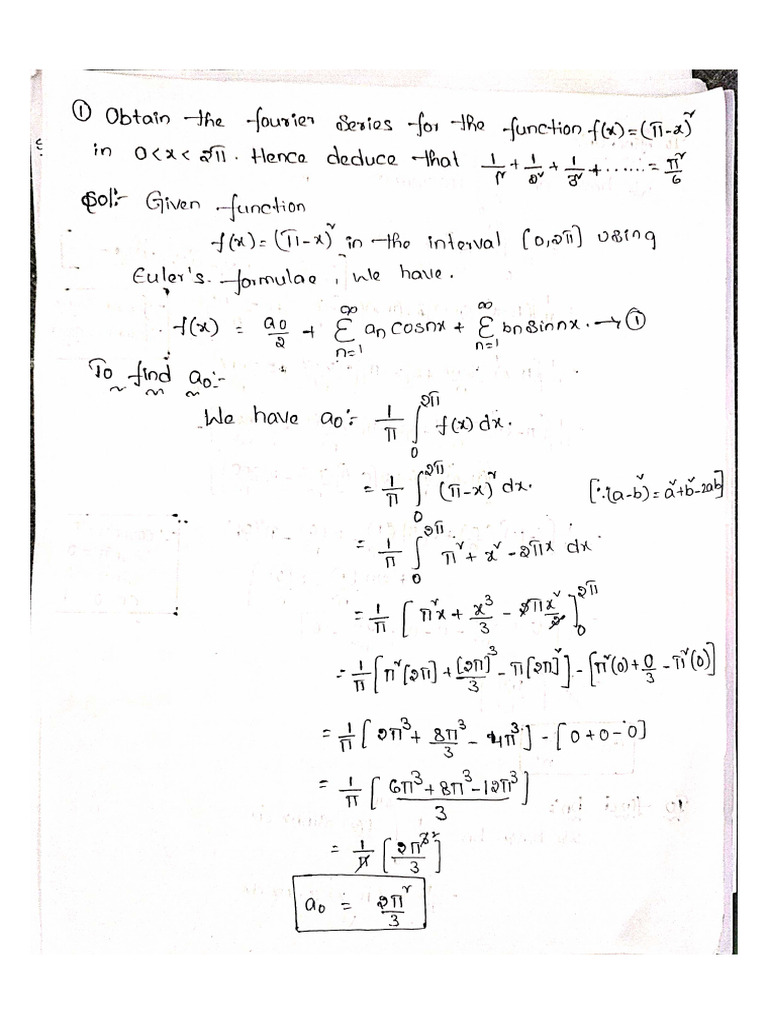 ① Obtain the fourier Series for the function f(x)=(π-x)²
in 0<x<2π. Hence deduce that 1/1² + 1/2² + 1/3² + ...... = π²/6
Sol:- Given function
f(x)=(π-x)² in the interval [0,2π] using
Euler's formulae, We have.
f(x) = a₀/2 + ∞Σn=1 aₙ cosnx + ∞Σn=1 bₙ sinnx. → ①
To find a₀:-
We have a₀:- 1/π ∫₀^2π f(x) dx.
= 1/π ∫₀^2π (π-x)² dx. [∵(a-b)²=a²+b²-2ab]
= 1/π ∫₀^2π π²+x²-2πx dx.
= 1/π [π²x + x³/3 - 2πx²/2]₀^2π
= 1/π [π²[2π] + [2π]³/3 - π[2π]²] - [π²(0)+0/3-π²(0)]
= 1/π [2π³ + 8π³/3 - 4π³] - [0+0-0]
= 1/π [6π³+8π³-12π³/3]
= 1/π [2π³/3]
a₀ = 2π²/3